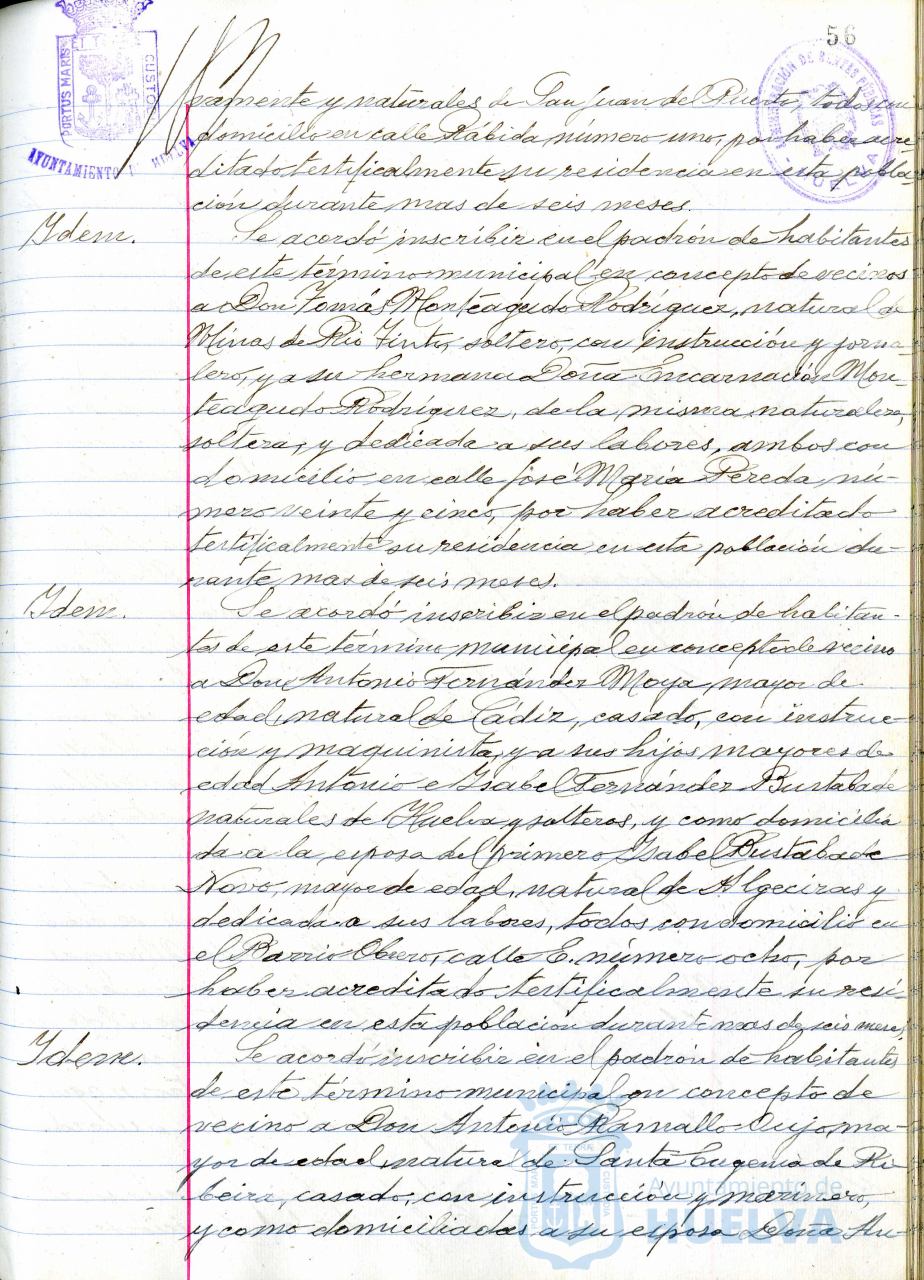 56
PORTUS MARIS ET TERRAE CUSTODIA
AYUNTAMIENTO HUELVA
ADMINISTRACION DE RENTAS PUBLICAS
HUELVA
eramente y naturales de San Juan del Puerto, todos con
domicilio en calle Rábida, número uno, por haber acre-
ditado testificalmente su residencia en esta pobla-
ción durante mas de seis meses.
Idem.
Se acordó inscribir en el padrón de habitantes
de este término municipal en concepto de vecinos
a Don Tomás Monteagudo Rodríguez, natural de
Minas de Rio Tinto, soltero, con instrucción y jorna-
lero, y a su hermana Doña Encarnación Mon-
teagudo Rodríguez, de la misma naturaleza,
soltera, y dedicada a sus labores, ambos con
domicilio en calle José María Pereda, nú-
mero veinte y cinco, por haber acreditado
testificalmente su residencia en esta población du-
rante mas de seis meses.
Idem.
Se acordó inscribir en el padrón de habitan-
tes de este término municipal en concepto de vecino
a Don Antonio Fernández Moya, mayor de
edad, natural de Cádiz, casado, con instruc-
ción y maquinista, y a sus hijos mayores de
edad Antonio e Isabel Fernández Bustabade
naturales de Huelva y solteros, y como domicilia
da a la esposa del primero Isabel Bustabade
Novo, mayor de edad, natural de Algeciras y
dedicada a sus labores, todos con domicilio en
el Barrio Obrero, calle E. número ocho, por
haber acreditado testificalmente su resi-
dencia en esta población durante mas de seis meses.
Idem.
Se acordó inscribir en el padrón de habitantes
de este término municipal en concepto de
vecino a Don Antonio Ramallo Oujo, ma-
yor de edad, natural de Santa Eugenia de Ri-
beira, casado, con instrucción y marinero,
y como domiciliadas a su esposa Doña
Ayuntamiento de
HUELVA